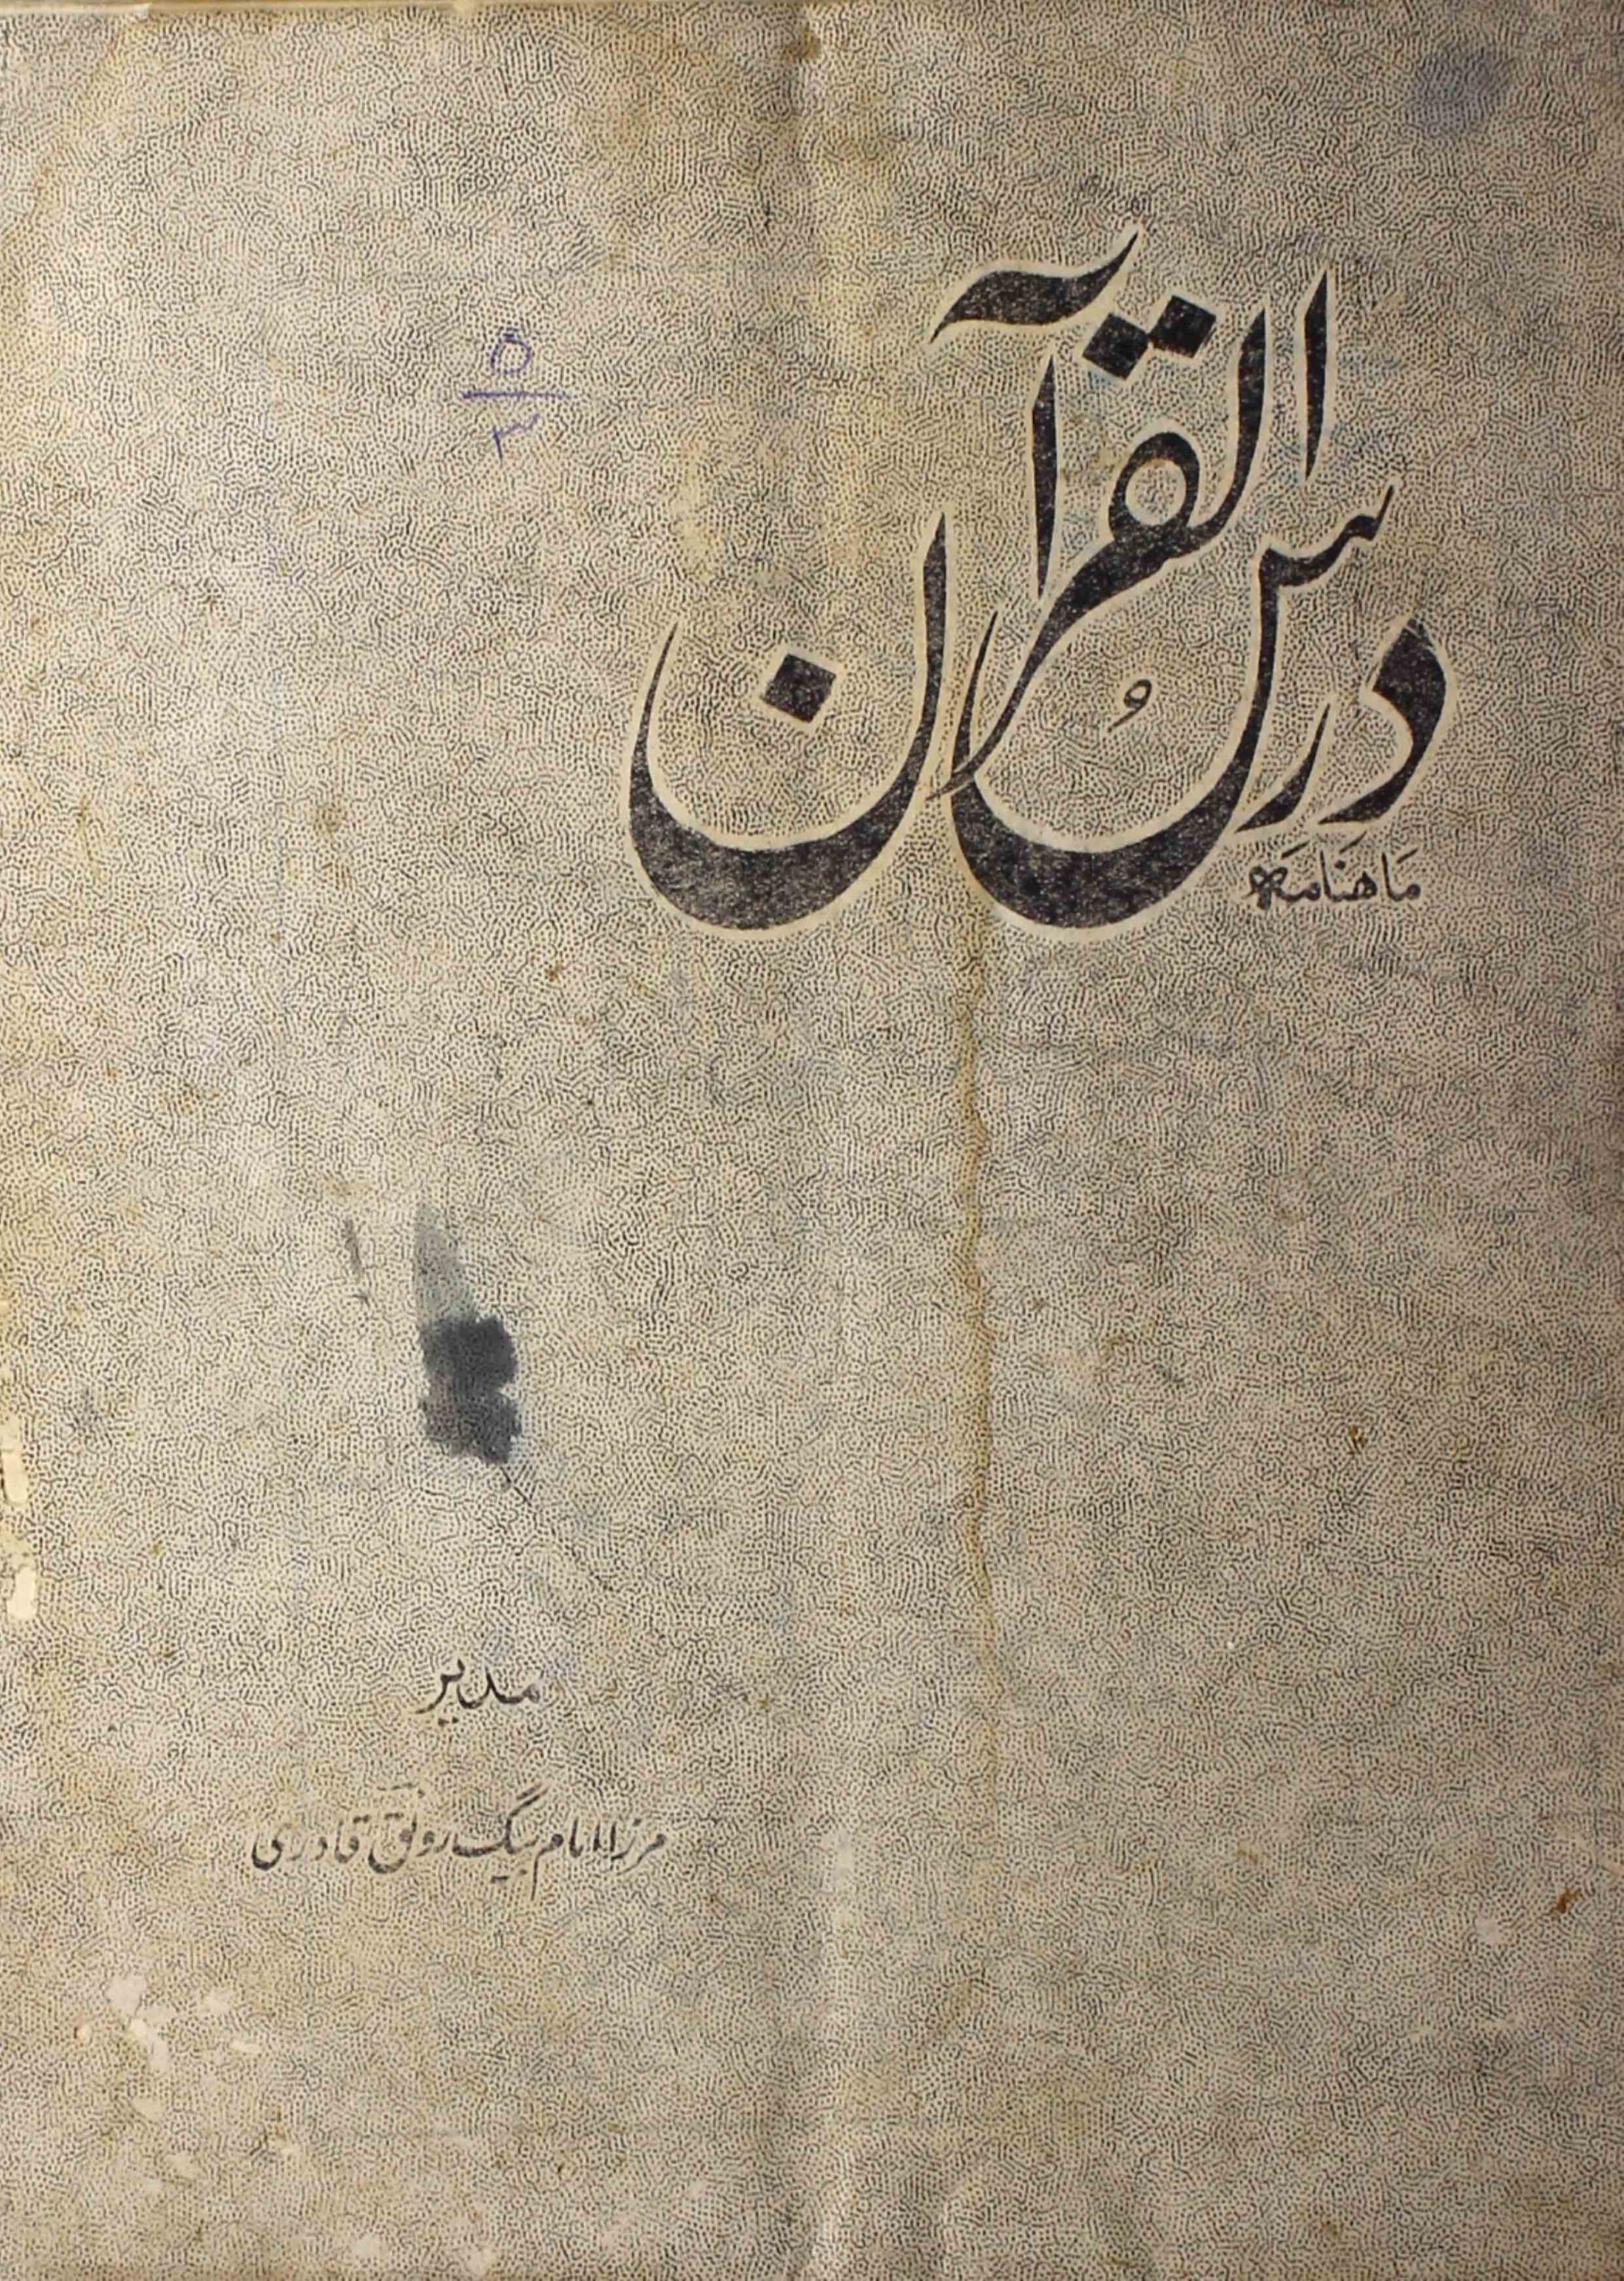 ۵
۳
درسُ القرآن
مَاهنَامَہ
مدیر
مرزا امام بیگ رونقؔ قادری